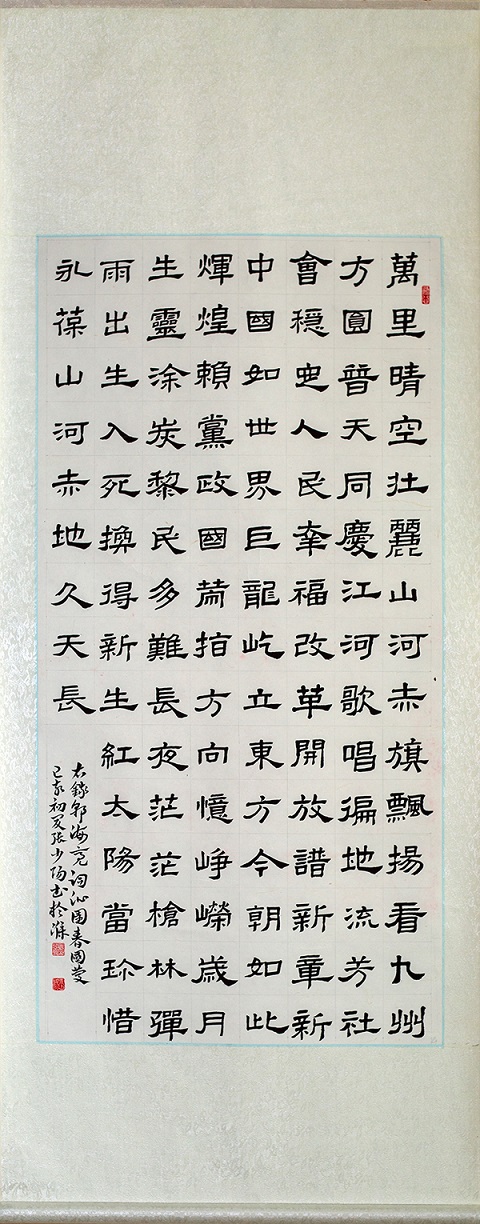 萬里晴空壯麗山河赤旗飄揚看九州
方圓普天同慶江河歌唱徧地流芳社
會穩定人民幸福改革開放譜新章新
中國如世界巨龍屹立東方今朝如此
輝煌賴黨政國策指方向憶崢嶸歲月
生靈涂炭黎民多難長夜茫茫槍林彈
雨出生入死換得新生紅太陽當珍惜
永葆山河赤地久天長
右錄郭海亮詞沁園春國慶
己亥初夏張少陽書於滁